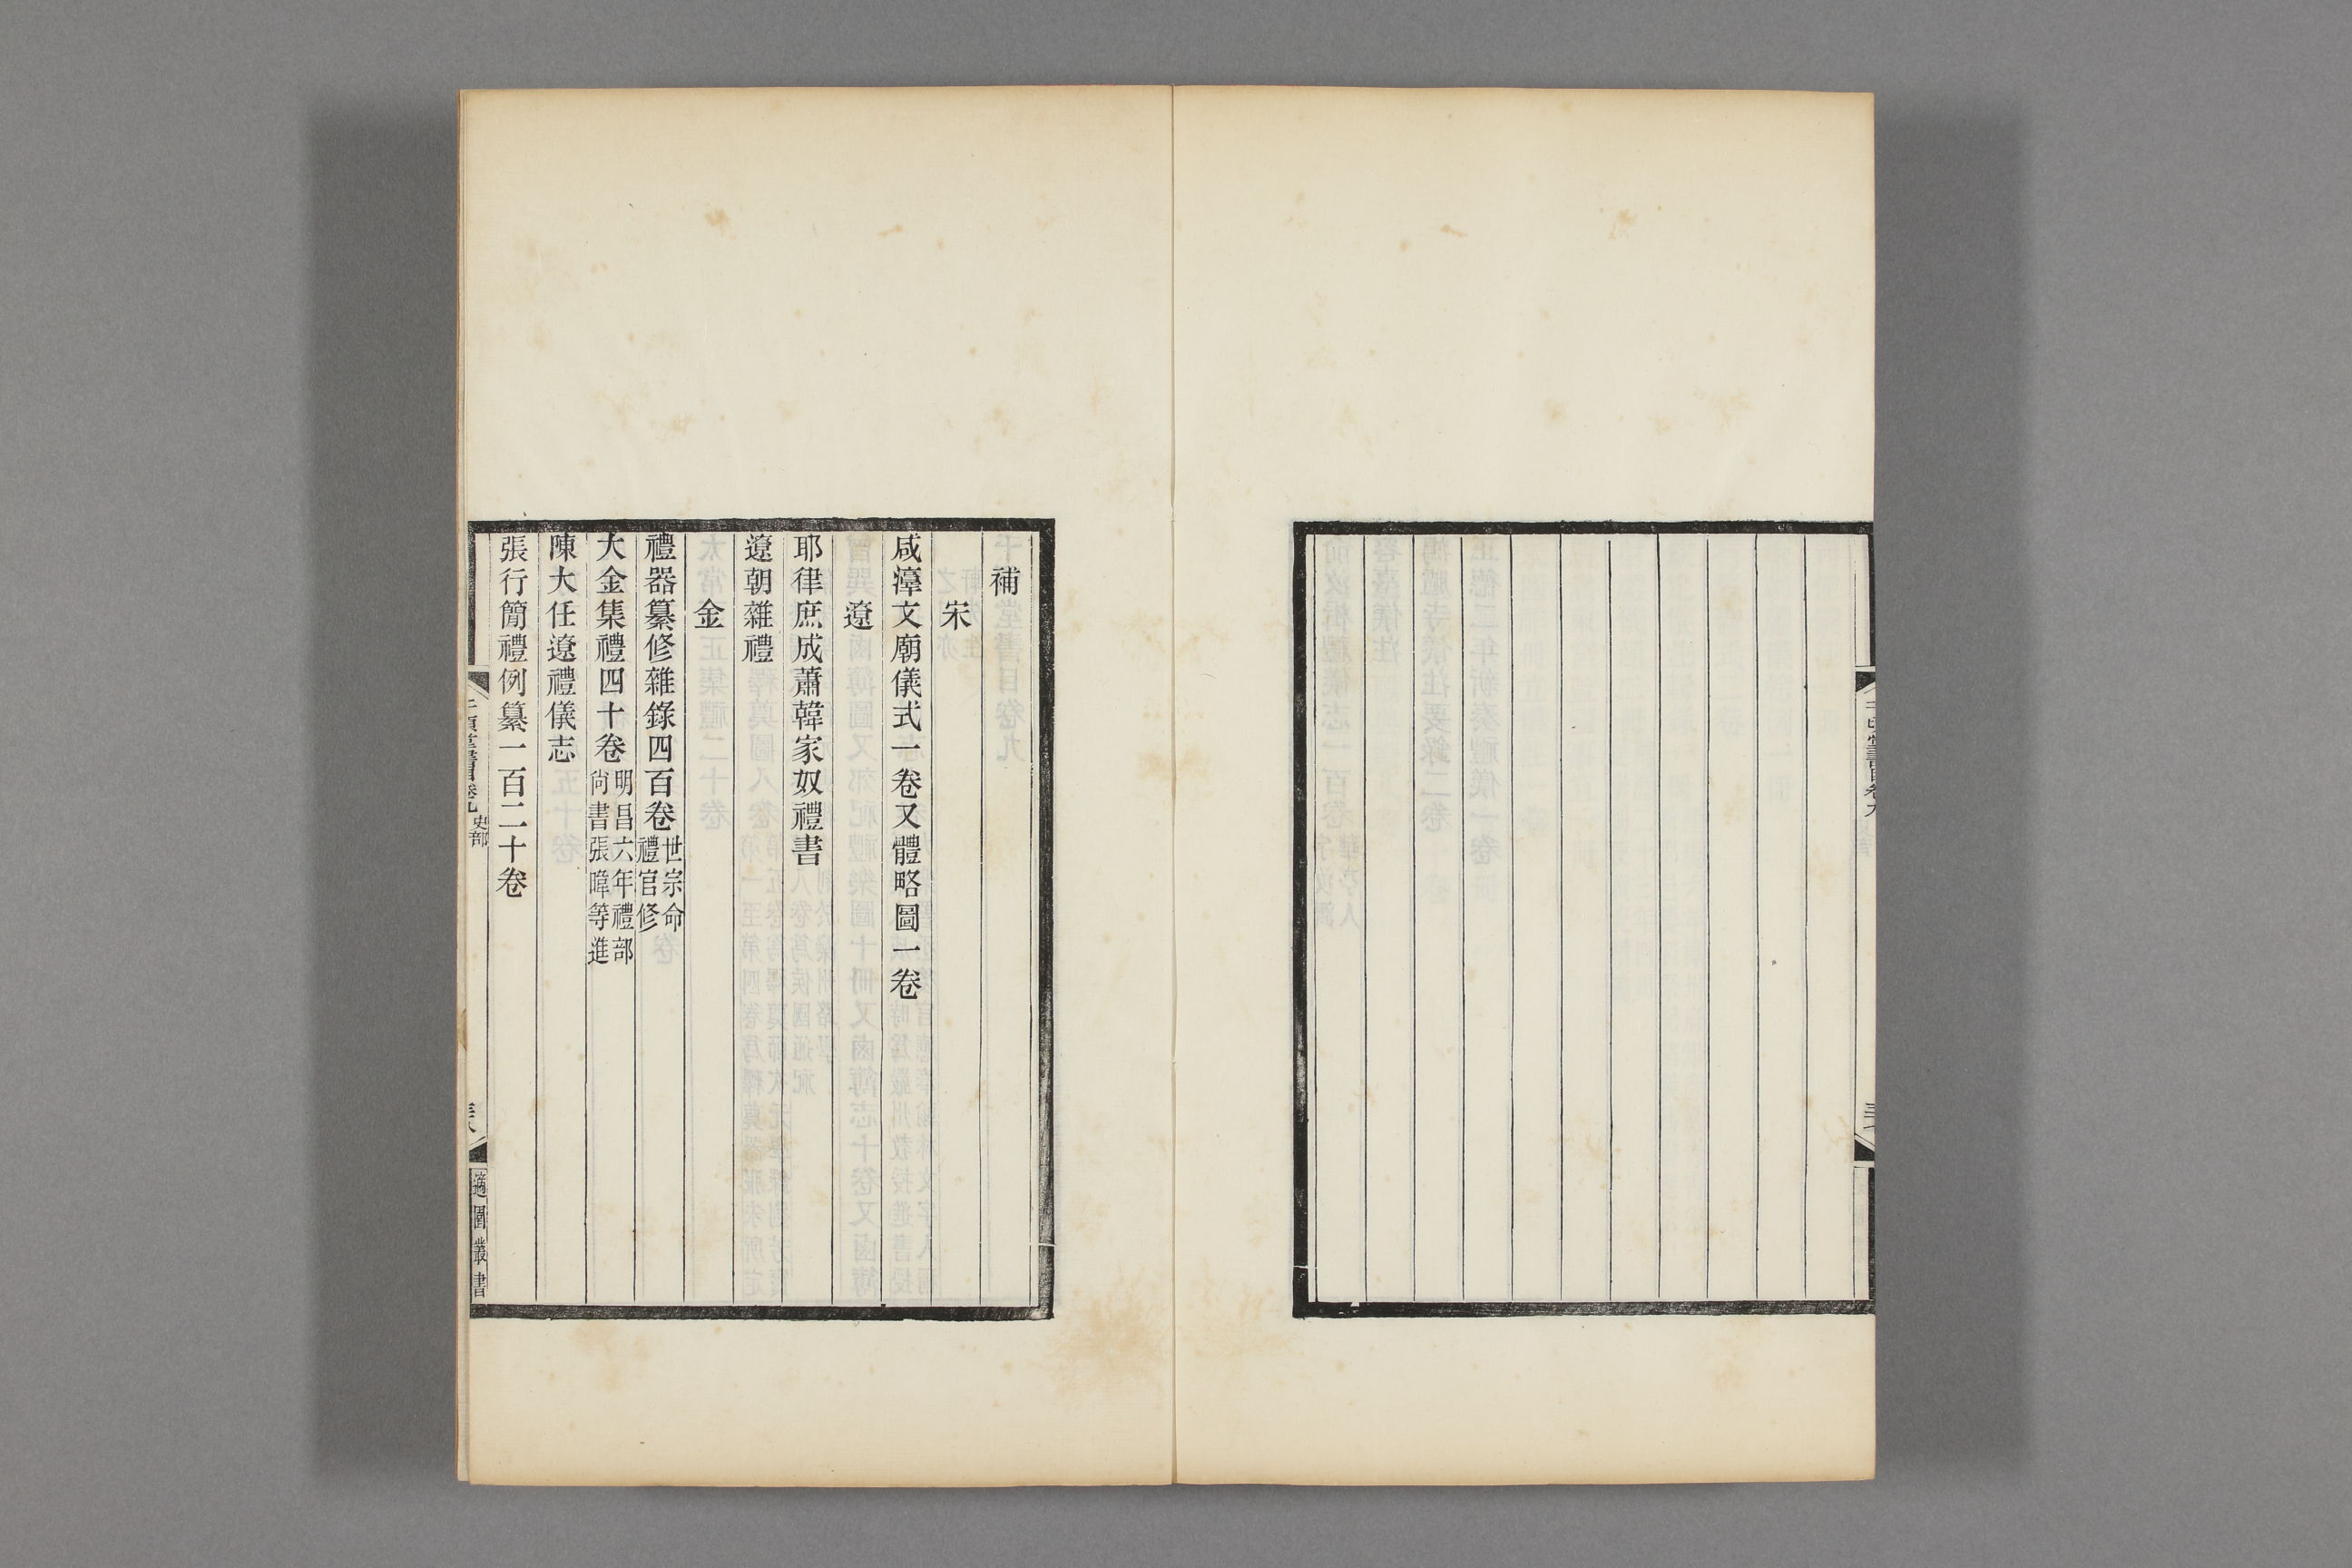 補
宋
咸淳文廟儀式一卷又體略圖一卷
遼
耶律庶成蕭韓家奴禮書
遼朝雜禮
金
禮器纂修雜錄四百卷世宗命禮官修
大金集禮四十卷明昌六年禮部尙書張暐等進
陳大任遼禮儀志
張行簡禮例纂一百二十卷
千頃堂書目卷九 史部
適園叢書